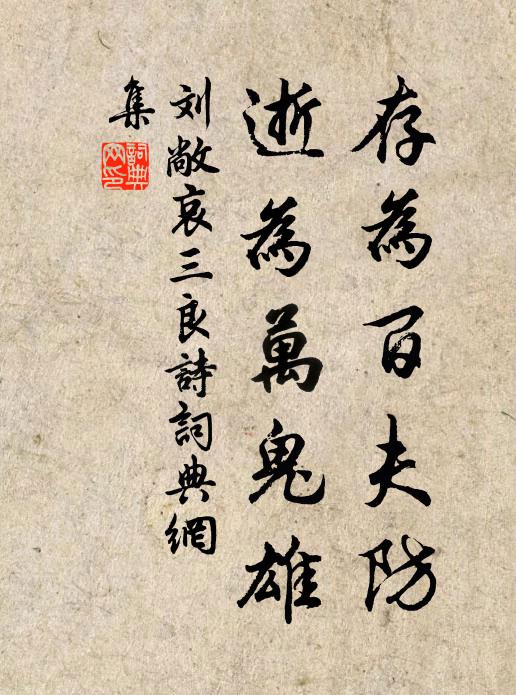 存為百夫防
逝為萬鬼雄
刘敞哀三良詩詞典網
集
詞典
网印